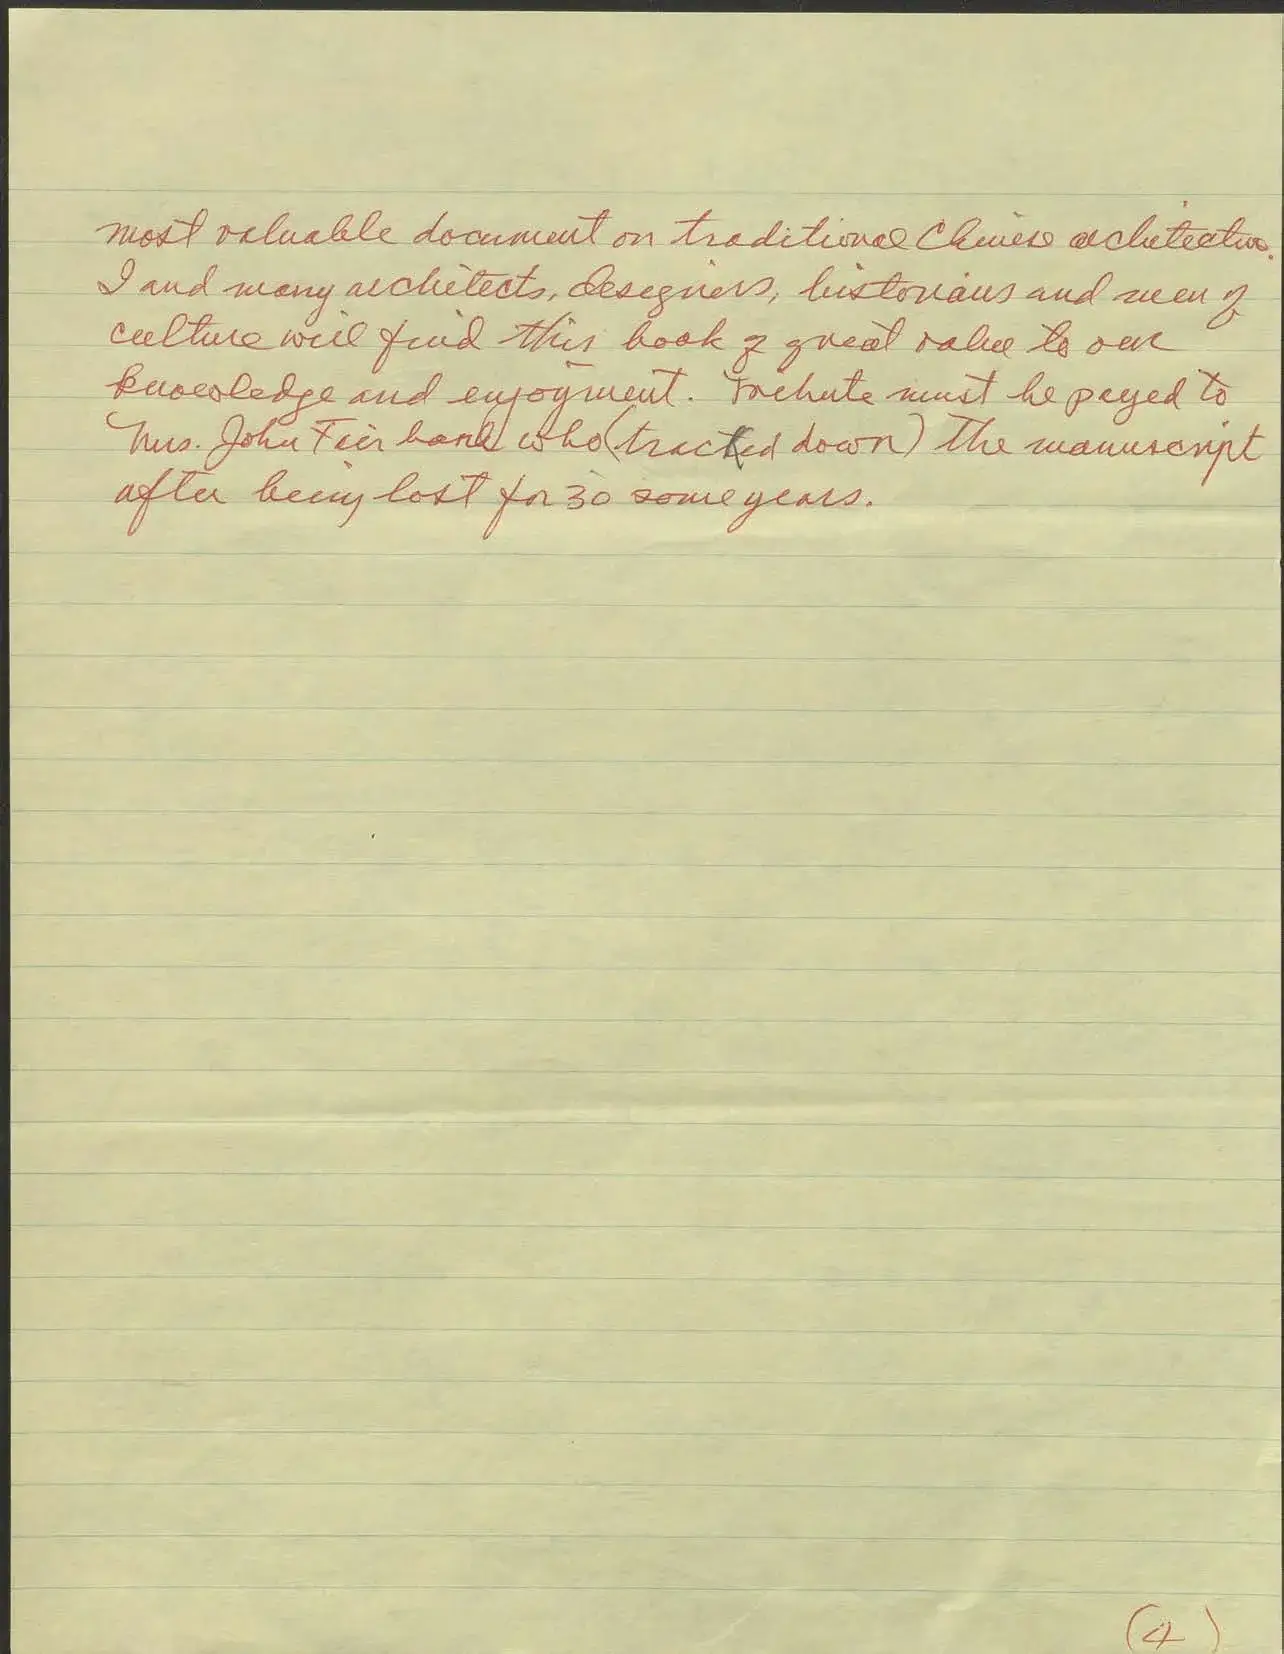 most valuable document on traditional Chinese architecture.
I and many architects, designers, historians and men of
culture will find this book of great value to our
knowledge and enjoyment. Trebute must be payed to
Mrs. John Fairbank who (tracked down) the manuscript
after being lost for 30 some years.
(4)